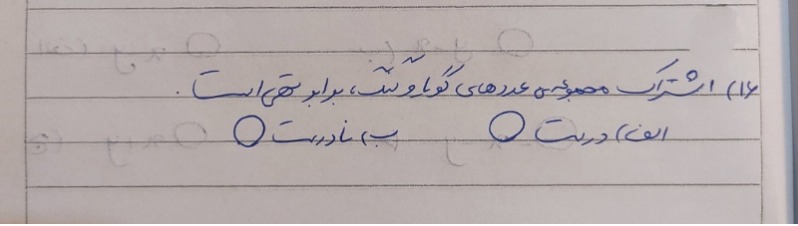 ۱۶) اشتراک مجموعه‌ی عددهای گویا و گنگ، برابر تهی است.
الف) درست ○ ب) نادرست ○